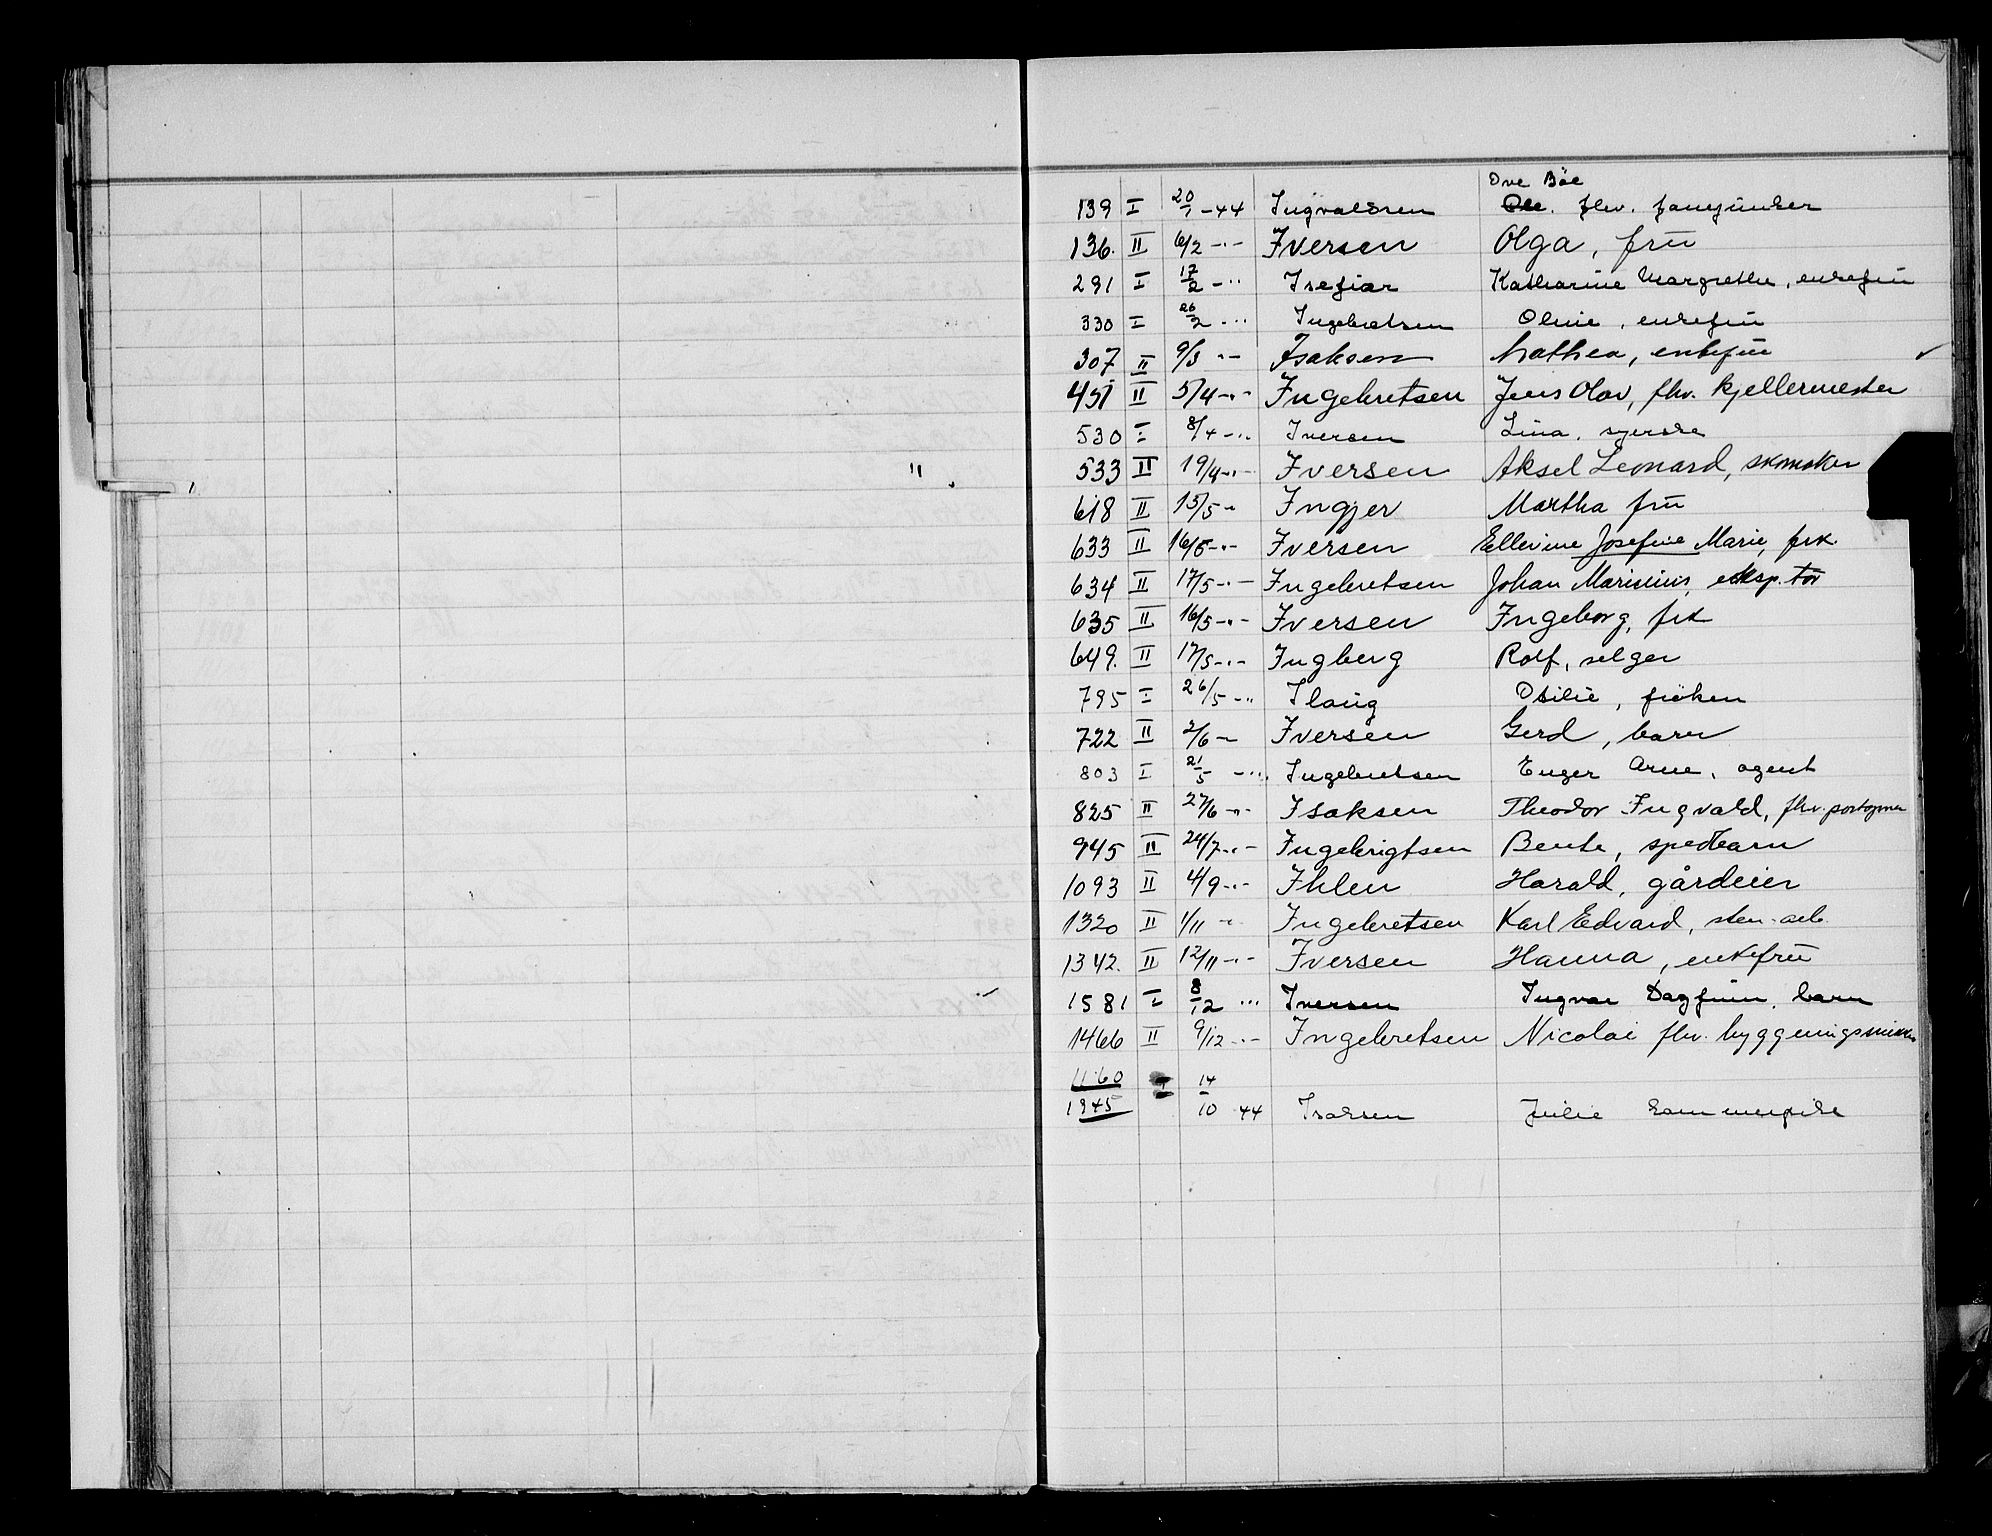 Ove Bøe
139 I 20/1 -44 Ingvaldsen Ole. fhv. fanejunker
136. II 6/2 -"- Iversen Olga, frü
291 I 17/2 -" Isefiær Katharine Margrethe, enkefrü
330 I 26/2 -" Ingebretsen Oline, enkefrü
307 II 9/3 "- Isaksen Mathea, enkefrü
451 II 5/4 -"- Ingebretsen Jens Olav, fhv. kjellermester
530 I 8/4 -" Iversen Lina, syerske
533 II 19/4 -"- Iversen Aksel Leonard, skomaker
618 II 15/5 " Ingjer Martha frü
633 II 16/5 -"- Iversen Ellevine Josefine Marie, frk.
634 II 17/5 -"- Ingebretsen Johan Marinius, eksp.tør
635 II 16/5 -"- Iversen Ingeborg, frk
649. II 17/5 -"- Ingberg Rolf, selger
795 I 26/5 -" Ilaug Otilie, frøken
722 II 2/6 -" Iversen Gerd, barn
803 I 21/5 -" Ingebretsen Enger Arne, agent
825 II 27/6 -"- Isaksen Theodor Ingvald, fhv.
945 II 24/7 -"- Ingebrigtsen Bente, spedbarn
1093 II 4/9 -"- Ihlen Harald, gårdeier
1320 II 1/11 -" Ingebretsen Karl Edvard, sten.arb.
1342. II 12/11 -"- Iversen Hanna, enkefrü
1581 I 8/12 " Iversen Ingvar Dagfinn, barn
1466 II 9/12 -"- Ingebretsen Nicolai fhv.
1160 I 14
1945 10 44 Isaksen Julie